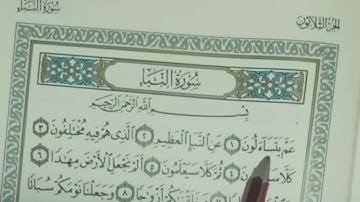 سُورَةُ النَّبَإِ
الجُزْءُ الثَّلَاثُونَ
سُورَةُ النَّبَإِ
بِسْمِ اللَّهِ الرَّحْمَٰنِ الرَّحِيمِ
عَمَّ يَتَسَاءَلُونَ ١ عَنِ النَّبَإِ الْعَظِيمِ ٢ الَّذِي هُمْ فِيهِ مُخْتَلِفُونَ ٣
كَلَّا سَيَعْلَمُونَ ٤ ثُمَّ كَلَّا سَيَعْلَمُونَ ٥ أَلَمْ نَجْعَلِ الْأَرْضَ مِهَادًا ٦
أَزْوَاجًا ٨ وَجَعَلْنَا نَوْمَكُمْ سُبَاتًا